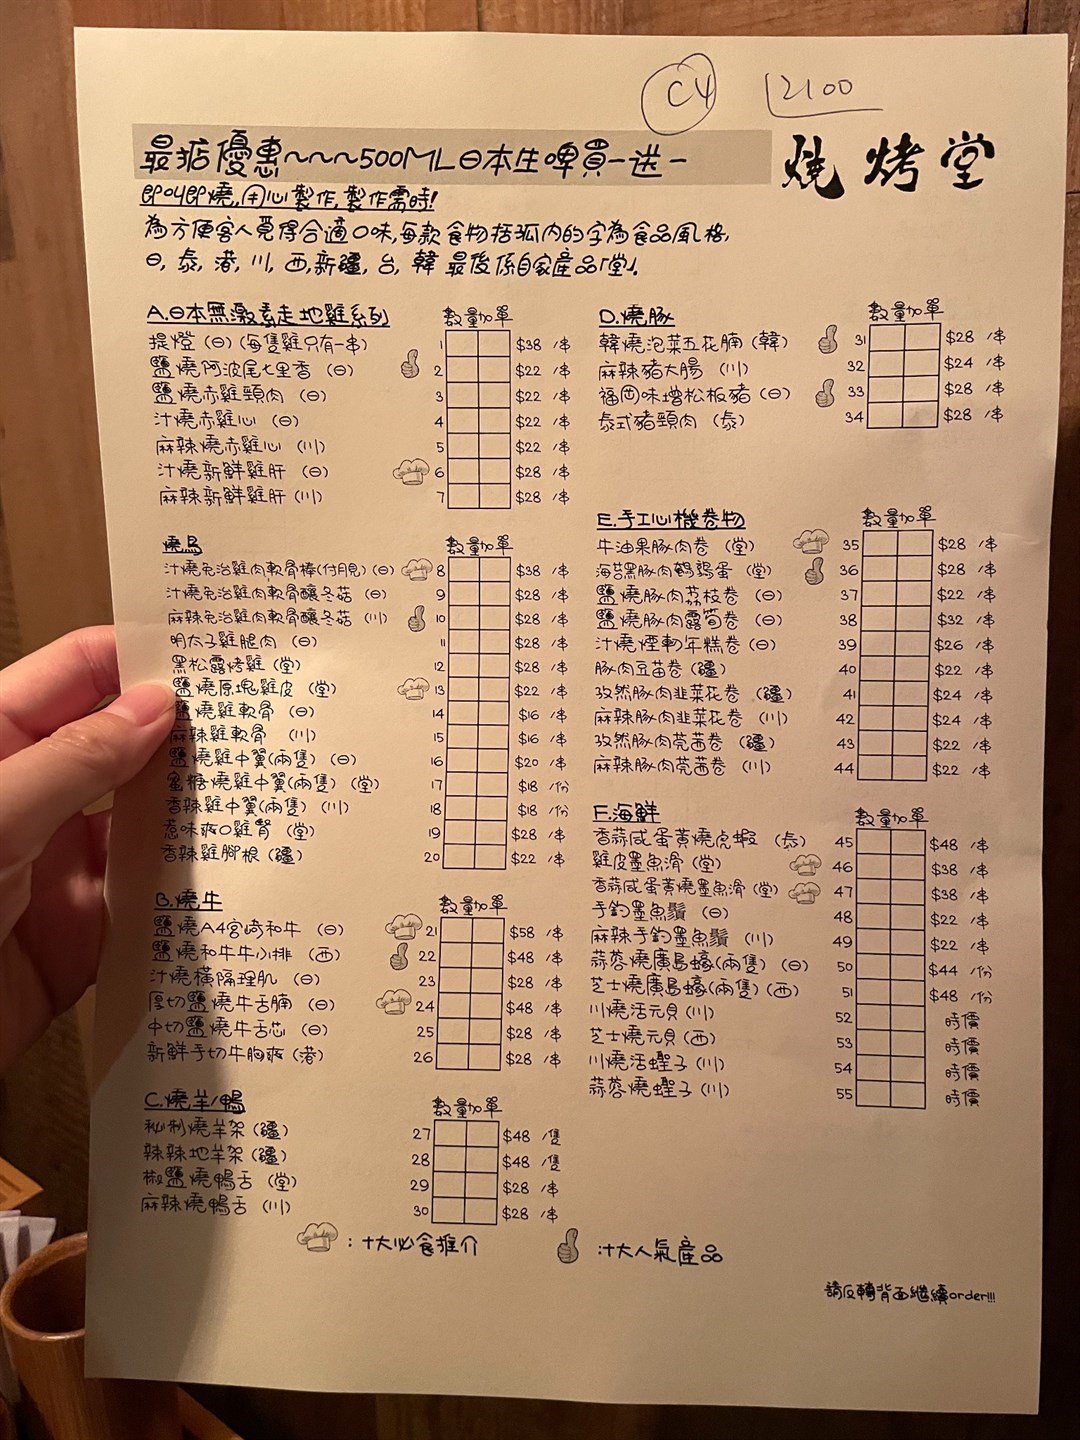 C4
2100
最掂優惠~~~500ML日本生啤買一送一
燒烤堂
即叫即燒,用心製作,製作需時!
為方便客人覓得合適口味,每款食物括弧內的字為食品風格,
日, 泰, 港, 川, 西, 新疆, 台, 韓 最後係自家產品「堂」。
A.日本無激素走地雞系列 數量 加單
提燈 (日) (每隻雞只有一串) 1 $38 /串
鹽燒阿波尾七里香 (日) 2 $22 /串
鹽燒赤雞頸肉 (日) 3 $22 /串
汁燒赤雞心 (日) 4 $22 /串
麻辣燒赤雞心 (川) 5 $22 /串
汁燒新鮮雞肝 (日) 6 $28 /串
麻辣新鮮雞肝 (川) 7 $28 /串
燒鳥 數量 加單
汁燒免治雞肉軟骨棒(付月見) (日) 8 $38 /串
汁燒免治雞肉軟骨釀冬菇 (日) 9 $28 /串
麻辣免治雞肉軟骨釀冬菇 (川) 10 $28 /串
明太子雞腿肉 (日) 11 $28 /串
黑松露烤雞 (堂) 12 $28 /串
鹽燒原塊雞皮 (堂) 13 $22 /串
鹽燒雞軟骨 (日) 14 $16 /串
麻辣雞軟骨 (川) 15 $16 /串
鹽燒雞中翼(兩隻) (日) 16 $20 /串
蜜糖燒雞中翼(兩隻) (堂) 17 $18 /份
香辣雞中翼(兩隻) (川) 18 $18 /份
惹味爽口雞腎 (堂) 19 $28 /串
香辣雞腳根 (疆) 20 $22 /串
B.燒牛 數量 加單
鹽燒A4宮崎和牛 (日) 21 $58 /串
鹽燒和牛牛小排 (西) 22 $48 /串
汁燒橫隔理肌 (日) 23 $28 /串
厚切鹽燒牛舌腩 (日) 24 $48 /串
中切鹽燒牛舌芯 (日) 25 $28 /串
新鮮手切牛胸爽 (港) 26 $28 /串
C.燒羊/鴨 數量 加單
秘制燒羊架 (疆) 27 $48 /隻
辣辣地羊架 (疆) 28 $48 /隻
椒鹽燒鴨舌 (堂) 29 $28 /串
麻辣燒鴨舌 (川) 30 $28 /串
D.燒豚 數量 加單
韓燒泡菜五花腩 (韓) 31 $28 /串
麻辣豬大腸 (川) 32 $24 /串
福岡味增松板豬 (日) 33 $28 /串
泰式豬頸肉 (泰) 34 $28 /串
E.手工心機卷物 數量 加單
牛油果豚肉卷 (堂) 35 $28 /串
海苔黑豚肉鵪鶉蛋 (堂) 36 $28 /串
鹽燒豚肉荔枝卷 (日) 37 $22 /串
鹽燒豚肉露筍卷 (日) 38 $32 /串
汁燒煙靭年糕卷 (日) 39 $26 /串
豚肉豆苗卷 (疆) 40 $22 /串
孜然豚肉韭菜花卷 (疆) 41 $24 /串
麻辣豚肉韭菜花卷 (川) 42 $24 /串
孜然豚肉芫茜卷 (疆) 43 $22 /串
麻辣豚肉芫茜卷 (川) 44 $22 /串
F.海鮮 數量 加單
香蒜咸蛋黃燒虎蝦 (泰) 45 $48 /串
雞皮墨魚滑 (堂) 46 $38 /串
香蒜咸蛋黃燒墨魚滑 (堂) 47 $38 /串
手釣墨魚鬚 (日) 48 $22 /串
麻辣手釣墨魚鬚 (川) 49 $22 /串
蒜蓉燒廣島蠔(兩隻) (日) 50 $44 /份
芝士燒廣島蠔(兩隻) (西) 51 $48 /份
川燒活元貝 (川) 52 時價
芝士燒元貝 (西) 53 時價
川燒活蟶子 (川) 54 時價
蒜蓉燒蟶子 (川) 55 時價
:十大必食推介
:十大人氣產品
請反轉背面繼續order!!!